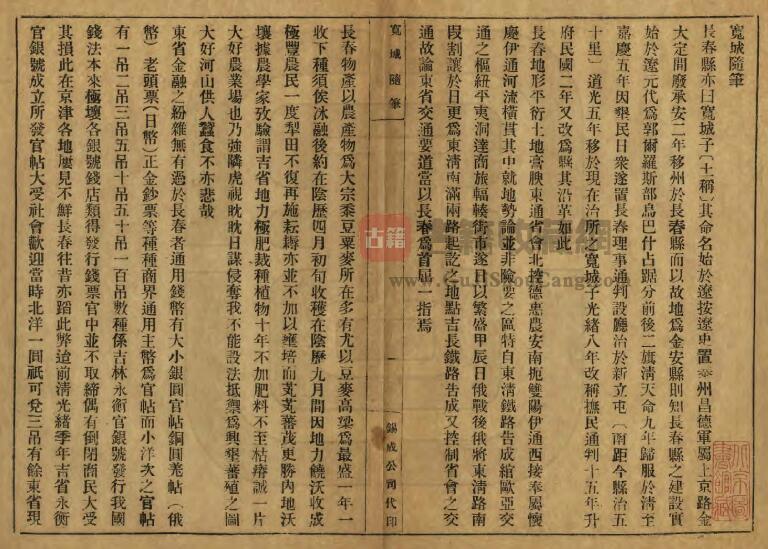 寬城隨筆
長春縣亦曰寬城子(土稱)其命名始於遼按遼史置泰州昌德軍屬上京路金
大定間廢承安二年移州於長春縣而以故地為金安縣則知長春縣之建設實
始於遼元代為郭爾羅斯部烏巴什占踞分前後二旗清天命九年歸服於清至
嘉慶五年因墾民日衆遂置長春理事通判設廳治於新立屯(南距今縣治五
十里)道光五年移於現在治所之寬城子光緒八年改稱撫民通判十五年升
府民國二年又改為縣其沿革如此
長春地形平衍土地膏腴東通省會北控德惠農安南扼雙陽伊通西接奉屬懷
慶伊通河流橫貫其中就地勢論並非險要之區特自東淸鐵路告成綰歐亞交
通之樞紐平夷洞達商旅輻輳街市遂日以繁盛甲辰日俄戰後俄將東淸路南
段割讓於日更為東淸南滿兩路起訖之地點吉長鐵路告成又控制省會之交
通故論東省交通要道當以長春為首屈一指焉
寬城隨筆
一
錫成公司代印
長春物產以農產物為大宗黍豆粟麥所在多有尤以豆麥高粱為最盛一年一
收下種須俟冰融後約在陰歷四月初旬收穫在陰歷九月間因地力饒沃收成
極豐農民一度犁田不復再施耘耨亦並不加以壅培而芃芃蕃茂更勝內地沃
壤據農學家攷驗謂吉省地力極肥栽種植物十年不加肥料不至枯瘠誠一片
大好農業場也乃強隣虎視眈眈日謀侵奪我不能設法抵禦為興墾蕃殖之圖
大好河山供人蠶食不亦悲哉
東省金融之紛雜無有過於長春者通用錢幣有大小銀圓官帖銅圓羌帖(俄
幣)老頭票(日幣)正金鈔票等種種商界通用主幣為官帖而小洋次之官帖
有一吊二吊三吊五吊十吊五十吊一百吊數種係吉林永衡官銀號發行我國
錢法本來極壞各銀號錢店類得發行錢票官中並不取締偶有倒閉商民大受
其損此在京津各地屢見不鮮長春往昔亦蹈此弊迨前淸光緒季年吉省永衡
官銀號成立所發官帖大受社會歡迎當時北洋一圓祇可兌三吊有餘東省現
古籍
www.GujiShouCang.com